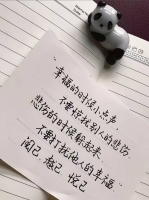 幸福的时候小点声,
不要惊扰别人的悲伤.
悲伤的时候躲起来.
不要打扰他人的幸福.
阅己 越己 悦己